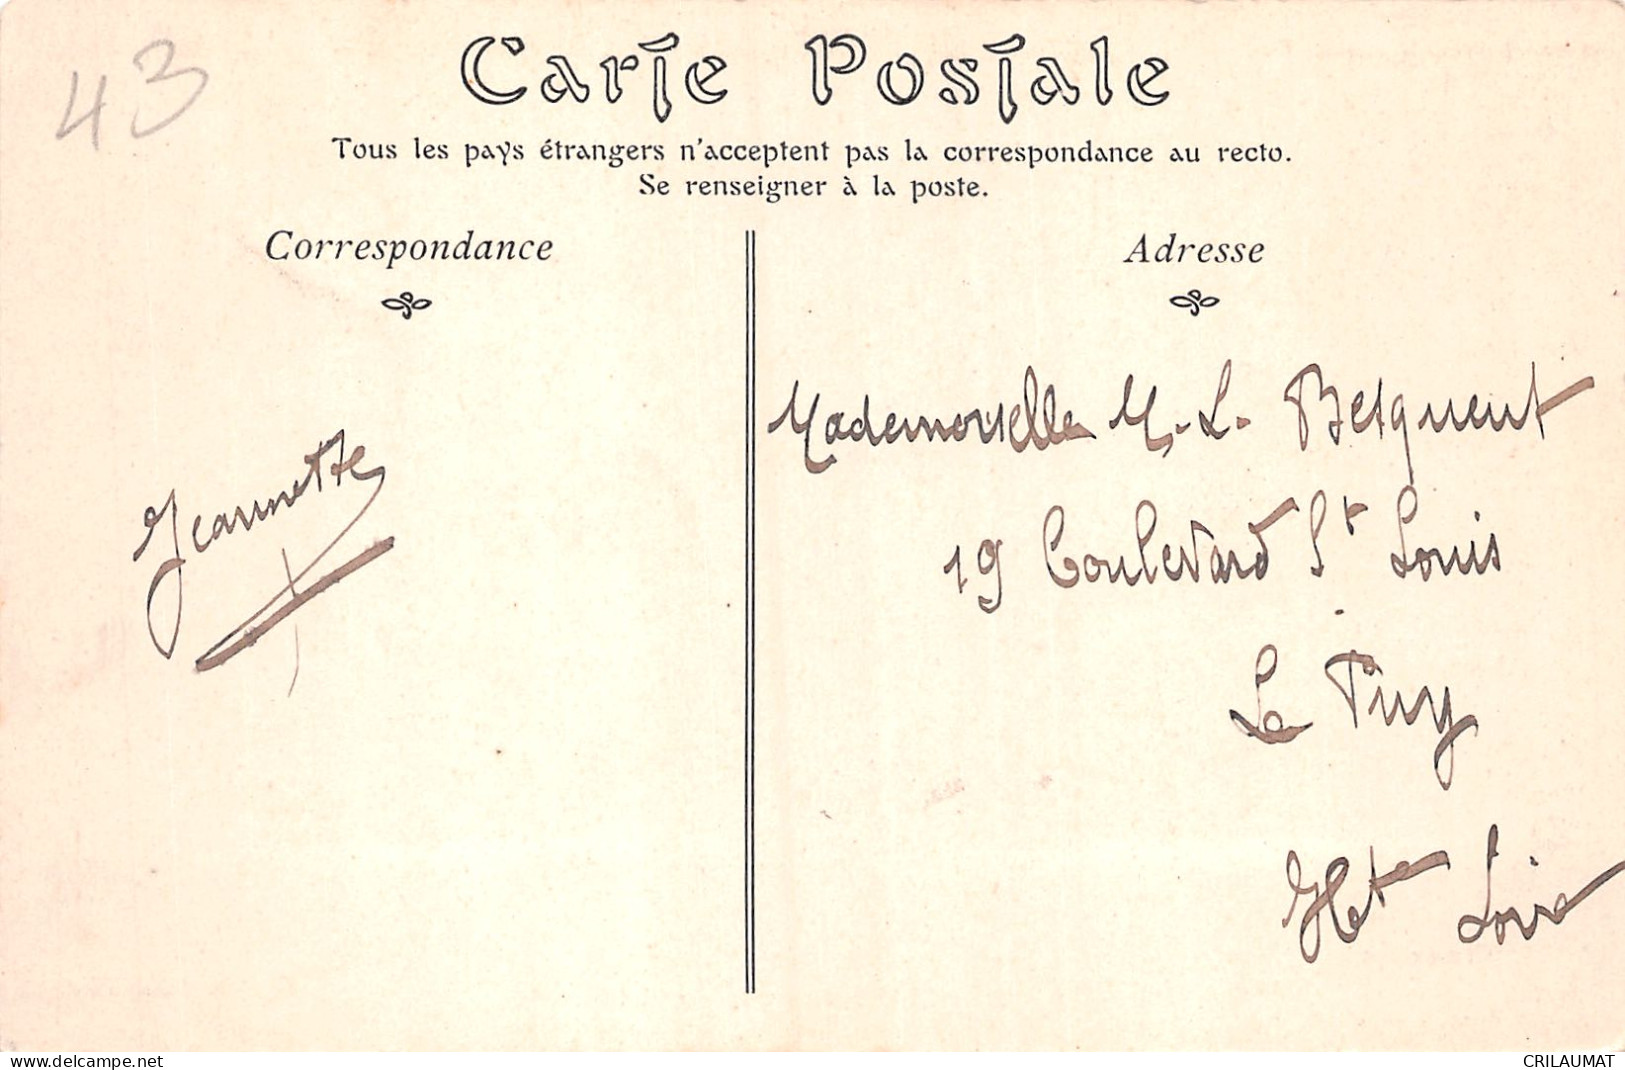 43
Carte Postale
Tous les pays étrangers n'acceptent pas la correspondance au recto.
Se renseigner à la poste.
Correspondance
Adresse
Jeannette
Mademoiselle M.-L.
19 Boulevard St Louis
Le Puy
Hte Loire
www.delcampe.net
CRILAUMAT